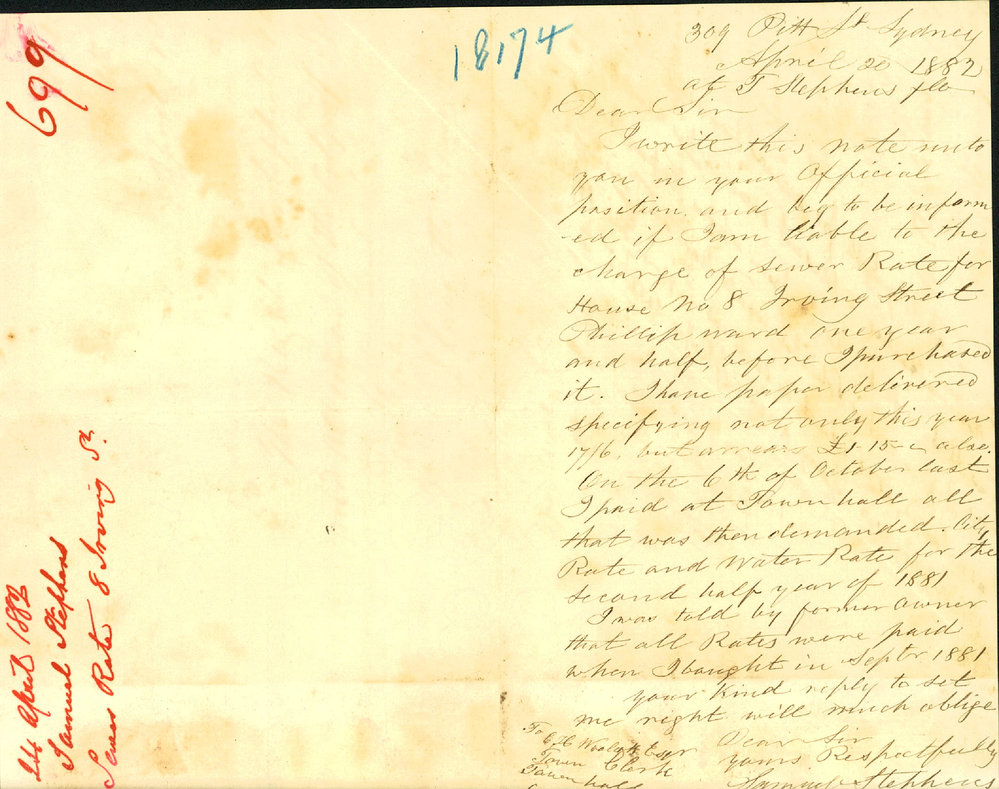 699
18174
24 April 1882
Samuel Stephens
Sewer Rate 8 Irving St.
309 Pitt St Sydney
April 20 1882
at T Stephens
Dear Sir
I write this note unto
you in your Official
position, and beg to be inform
ed if I am liable to the
charge of Sewer Rate for
House No 8 Irving Street
Phillip ward one year
and half, before I purchased
it. I have paper delivered
specifying not only this year
17/6, but arrears £1-15- also.
On the 6th of October last
I paid at Town hall all
that was then demanded. City
Rate and Water Rate for the
second half year of 1881
I was told by former Owner
that all Rates were paid
when I bought in Septr 1881
your kind reply to set
me right will much oblige
Dear Sir
yours Respectfully
Samuel Stephens
To
Esqr
Town Clerk
Town hall